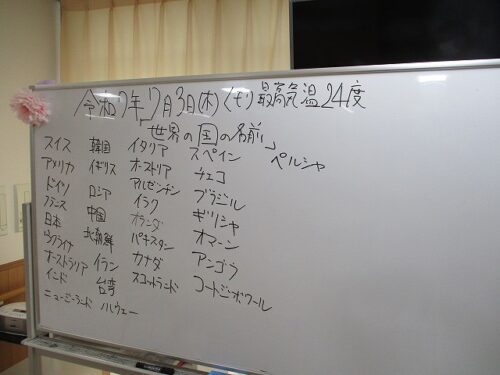 令和7年7月3日(木)くもり最高気温24度
「世界の国の名前」
スイス
アメリカ
ドイツ
フランス
日本
ウクライナ
オーストラリア
インド
ニュージーランド
韓国
イギリス
ロシア
中国
北朝鮮
イラン
台湾
ノルウェー
イタリア
オーストリア
アルゼンチン
イラク
オランダ
パキスタン
カナダ
スコットランド
スペイン
チェコ
ブラジル
ギリシャ
オマーン
アンゴラ
コートジボワール
ペルシャ